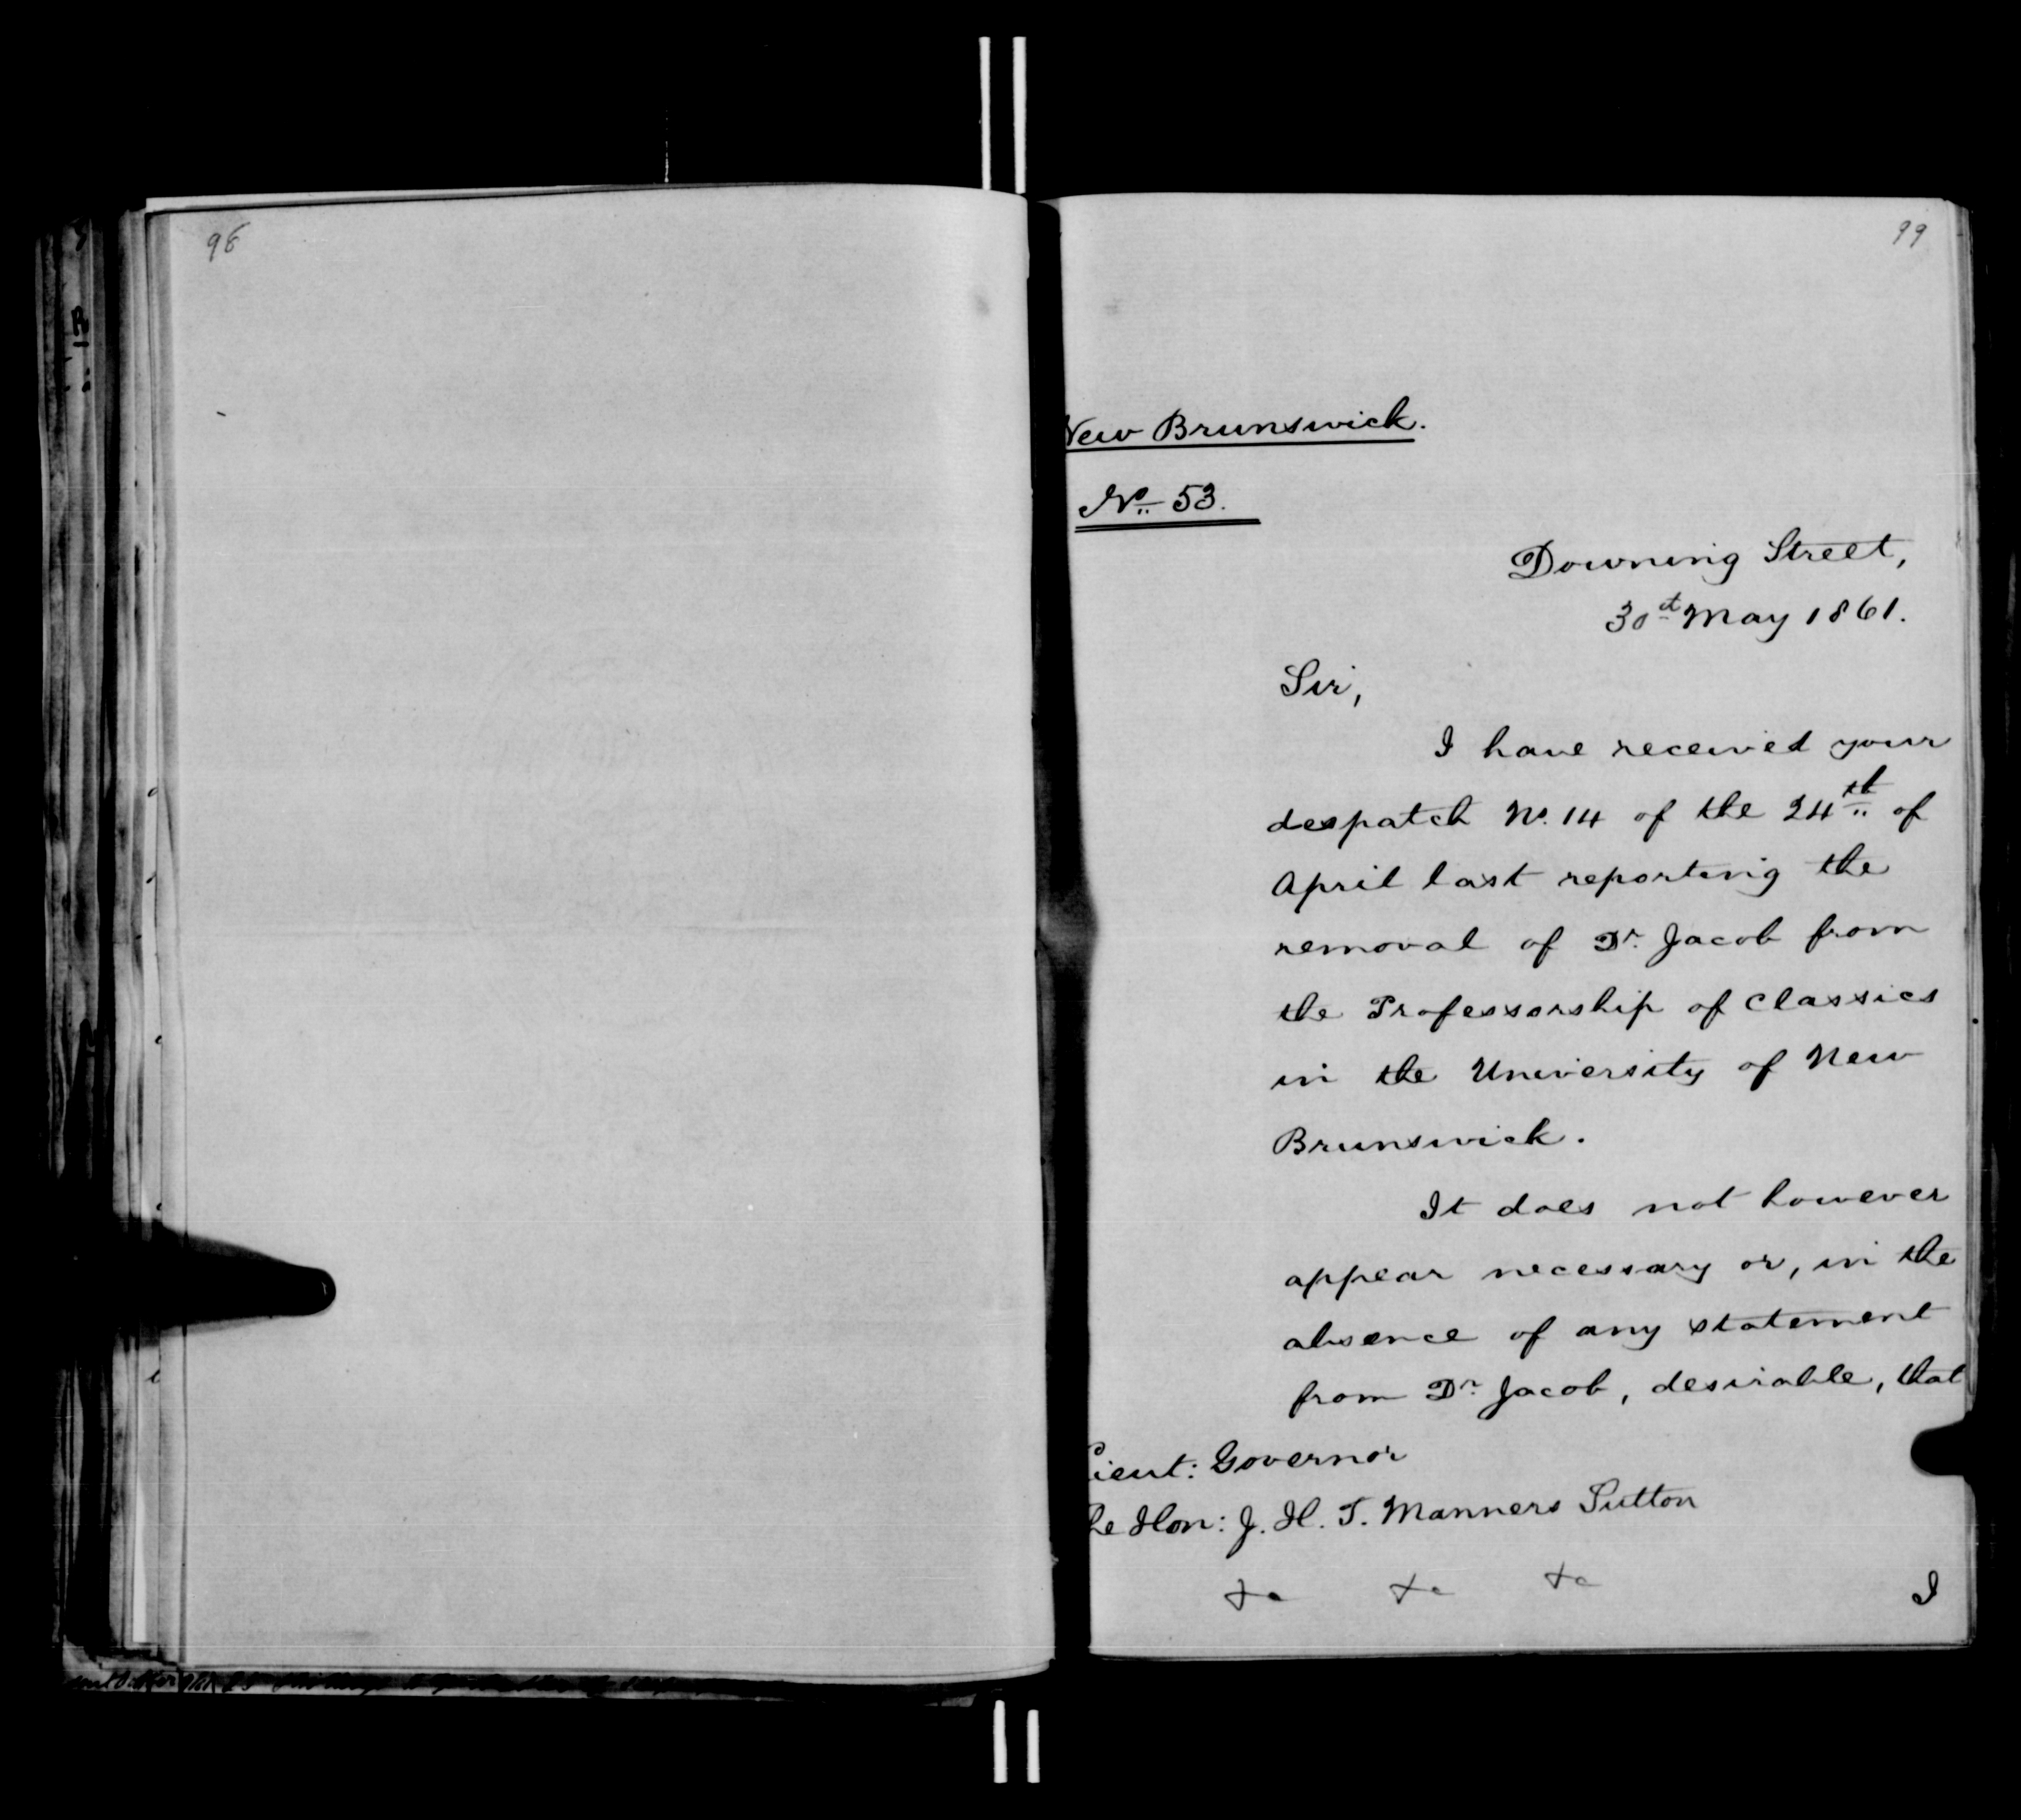 98
99
New Brunswick.
No. 53.
Downing Street,
30th May 1861.
Sir,
I have received your
despatch No. 14 of the 24th of
April last reporting the
removal of Dr. Jacob from
the Professorship of Classics
in the University of New
Brunswick.
It does not however
appear necessary or, in the
absence of any statement
from Dr. Jacob, desirable, that
Lieut: Governor
The Hon: J. H. T. Manners Sutton
&c &c &c
I